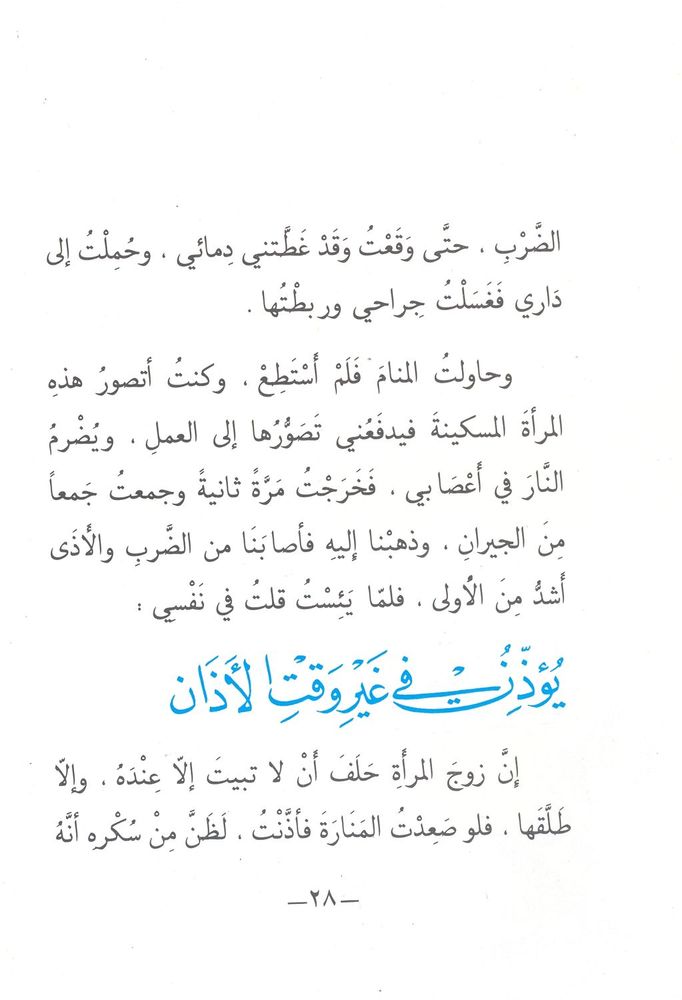 الضَّرْبِ ، حتَّى وَقَعْتُ وَقَدْ غَطَّتني دِمائي ، وحُمِلْتُ إلى
دَاري فَغَسَلْتُ جِراحي وربطْتُها .
وحاولتُ المنامَ فَلَمْ أَسْتَطِعْ ، وكنتُ أتصورُ هذهِ
المرأةَ المسكينةَ فيدفَعُني تَصَوُّرُها إلى العملِ ، ويُضْرمُ
النَّارَ في أَعْصَابي ، فَخَرَجْتُ مَرَّةً ثانيةً وجمعتُ جَمعاً
مِنَ الجيرانِ ، وذهبْنا إليهِ فأصابَنَا من الضَّربِ والأَذَى
أَشدُّ مِنَ الأُولى ، فلمّا يَئِسْتُ قلتُ في نَفْسِي :
يُؤذّنُ في غَيْرِ وَقتِ الأَذَان
إنَّ زوجَ المرأةِ حَلَفَ أَنْ لا تبيتَ إلّا عِنْدَهُ ، وإلّا
طَلَّقَها ، فلو صَعِدْتُ المَنَارَةَ فأذَّنْتُ ، لَظَنَّ مِنْ سُكْرِهِ أنَّهُ
—٢٨—